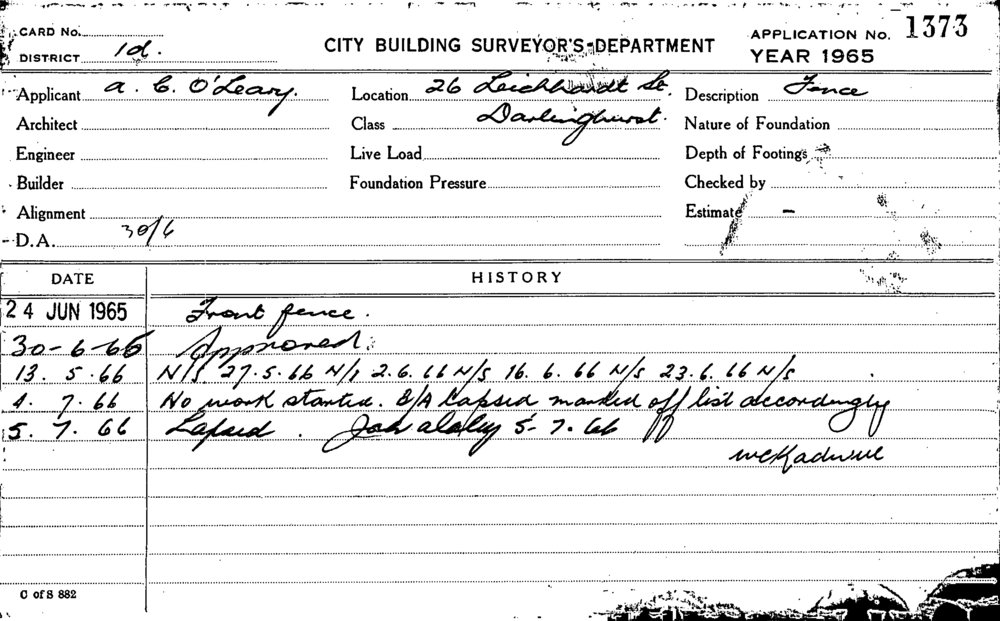 CARD No.
DISTRICT 1d.
CITY BUILDING SURVEYOR'S DEPARTMENT
APPLICATION No. 1373
YEAR 1965
Applicant A. C. O'Leary.
Location 26 Leichhardt St.
Description Fence
Architect
Class Darlinghurst.
Nature of Foundation
Engineer
Live Load
Depth of Footings
Builder
Foundation Pressure
Checked by
Alignment
Estimate -
D.A. 30/6
DATE HISTORY
24 JUN 1965 Front fence.
30-6-65 Approved.
13. 5. 66 N/S. 27.5.66 N/S 2.6.66 N/S 16. 6. 66 N/S 23.6.66 N/S
4. 7. 66 No work started. B/A Lapsed marked off list accordingly
5. 7. 66 Lapsed. 5-7.66
C of S 882